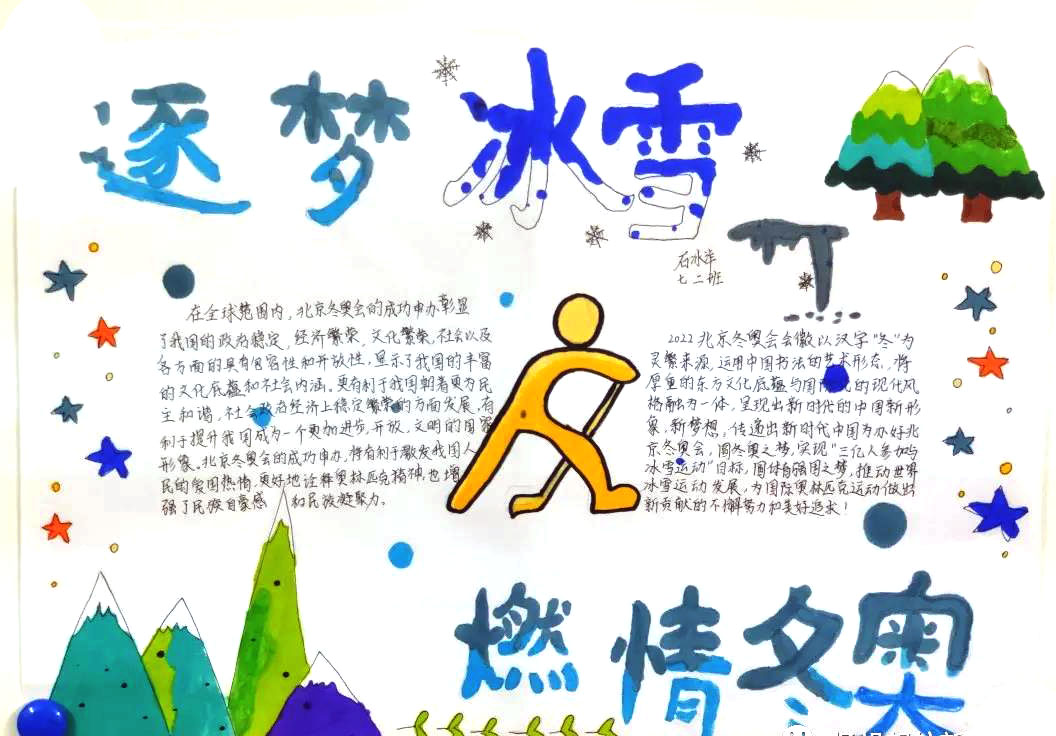 逐梦冰雪
石冰洋
七二班
在全球范围内，北京冬奥会的成功申办彰显
了我国的政治稳定，经济繁荣，文化繁荣，社会以及
各方面的具有包容性和开放性，显示了我国的丰富
的文化底蕴和社会内涵。更有利于我国朝着更为民
主和谐，社会政治经济上稳定繁荣的方面发展，有
利于提升我国成为一个更加进步，开放，文明的国家
形象。北京冬奥会的成功申办，将有利于激发我国人
民的爱国热情，更好地诠释奥林匹克精神，也增
强了民族自豪感和民族凝聚力。
2022北京冬奥会会徽以汉字“冬”为
灵繁来源，运用中国书法的艺术形态，将
厚重的东方文化底蕴与国际的现代风
格融为一体，呈现出新时代的中国新形
象，新梦想，传递出新时代中国为办好北
京冬奥会，圆冬奥之梦，实现“三亿人参与
冰雪运动”目标，圆体育强国之梦，推动世界
冰雪运动发展，为国际奥林匹克运动做出
新贡献的不懈努力和美好追求！
燃情冬奥